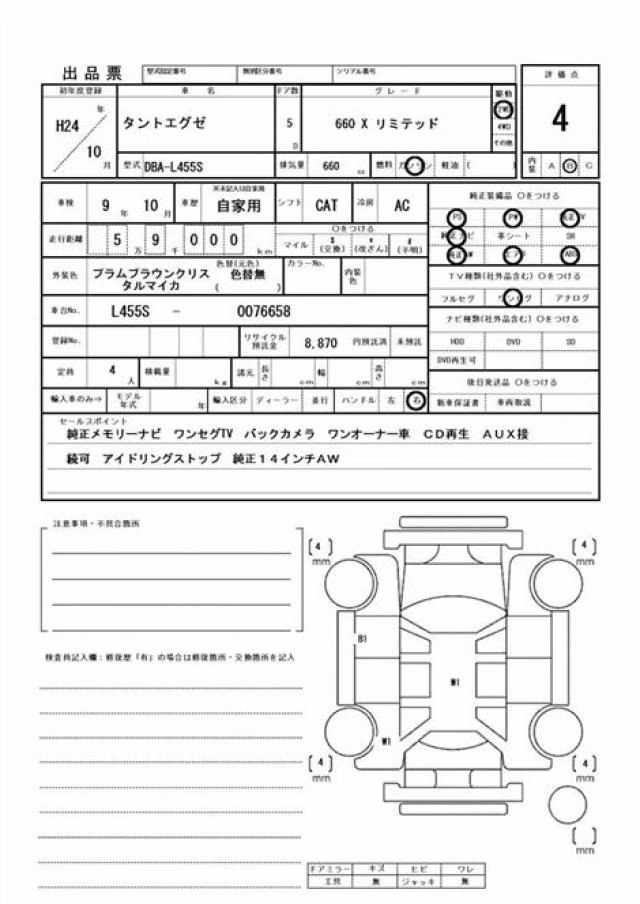 出品票 型式指定番号 類別区分番号 シリアル番号
初年度登録 車名 ドア数 グレード 駆動 評価点
H24 年 タントエグゼ 5 660 X リミテッド 2WD 4
10 月 D 4WD
その他
型式 DBA-L455S 排気量 660 cc 燃料 ガソリン 軽油 ( ) 内装 A B C
車検 9 年 10 月 車歴 ※未記入は自家用 自家用 シフト CAT 冷房 AC 純正装備品 〇をつける
走行距離 5 万 9 千 0 0 0 km 〇をつける PS PW 純正TV
マイル $ (交換) * (改ざん) # (不明) 純正ナビ 革シート SR
純正AW エアB ABS
外装色 プラムブラウンクリス 色替(元色) 色替無 カラーNo. 内装色 TV種類(社外品含む) 〇をつける
タルマイカ ( ) フルセグ ワンセグ アナログ
車台No. L455S - 0076658 ナビ種類(社外品含む) 〇をつける
登録No. リサイクル預託金 8,870 円預託済 未預託 HDD DVD SD
DVD再生可
定員 4 人 積載量 kg 諸元 長さ cm 幅 cm 高さ cm 後日発送品 〇をつける
輸入車のみ⇒ モデル年式 年 輸入区分 ディーラー 並行 ハンドル 左 右 新車保証書 車両取説
セールスポイント
純正メモリーナビ ワンセグTV バックカメラ ワンオーナー車 CD再生 AUX接
続可 アイドリングストップ 純正14インチAW
注意事項・不具合箇所
[4] mm [4] mm
B1
検査員記入欄:修復歴「有」の場合は修復箇所・交換箇所を記入
W1
W1
[4] mm [4] mm
[ ] mm
ドアミラー キズ ヒビ ワレ
工具 無 ジャッキ 無